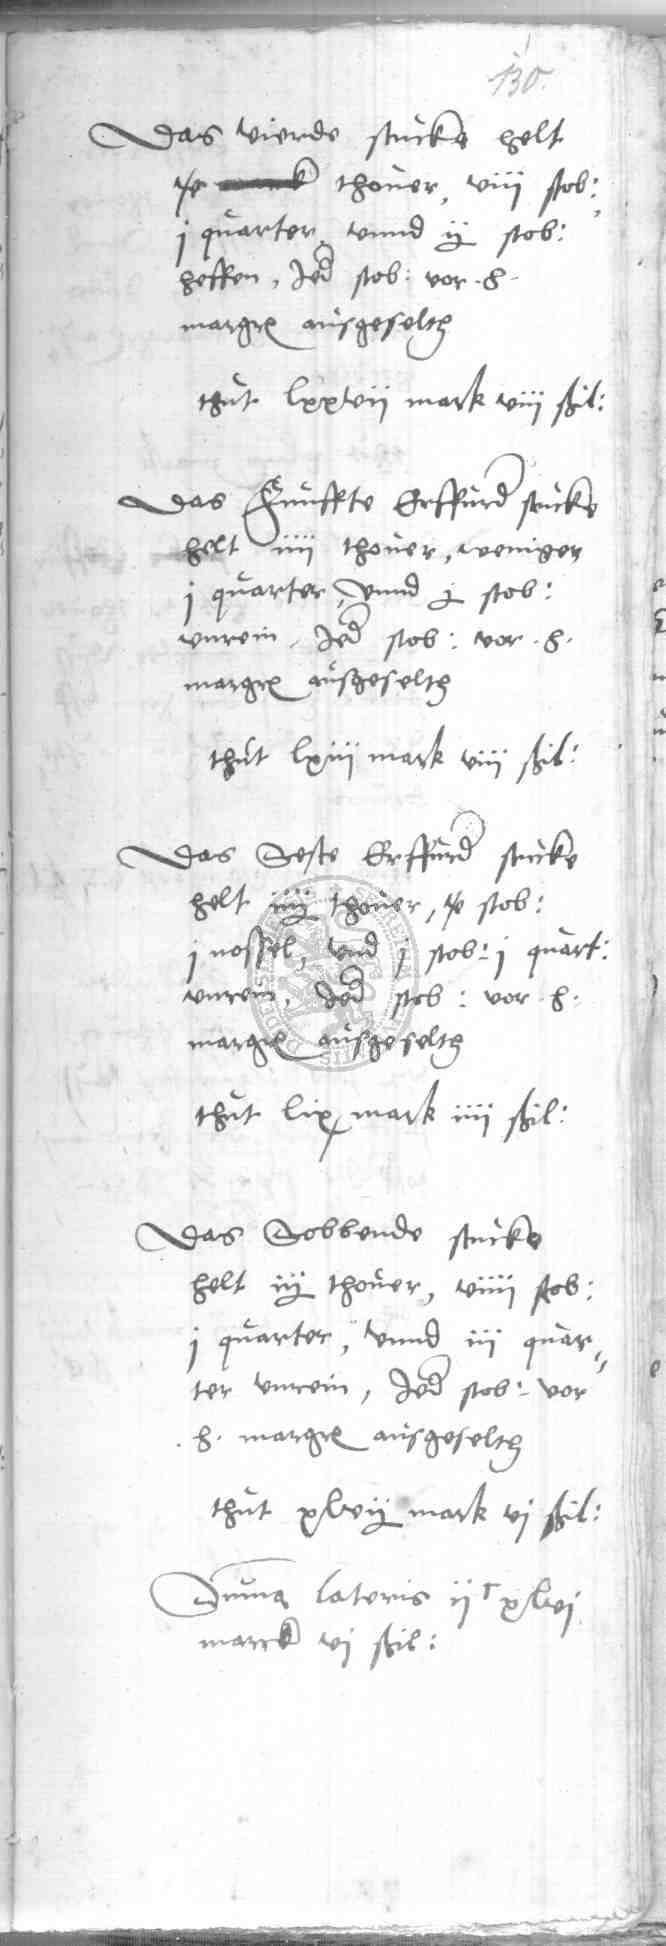 130.
Das vierde stucke helt
thover, viii stob:,
j quarter, vnnd ij stob:
heffen, Jed stob: vor . h .
margr ausgeseltz
thut lxxvii mark viii ßil:
Das Funffte Erffurd stucke
helt iiii thover, weniger
j quarter, vnnd j stob:
vnrein, Jed stob: vor . h .
margr ausgeseltz
thut lxiii mark viii ßil:
Das Seste Erffurd stucke
helt thover, stob:
j nossel, vnd j stob: j quart:
vnrein, Jed stob: vor . h .
margr ausgeseltz
thut lix mark iiii ßil:
Das Sobbende stucke
helt iij thover, viiii stob:
j quarter, vnnd iii quar=
ter vnrein, Jed stob: vor
. h . margr ausgeseltz
thut xlvij mark vj ßil:
Suma lateris ij c xlvj
marck vj ßil: